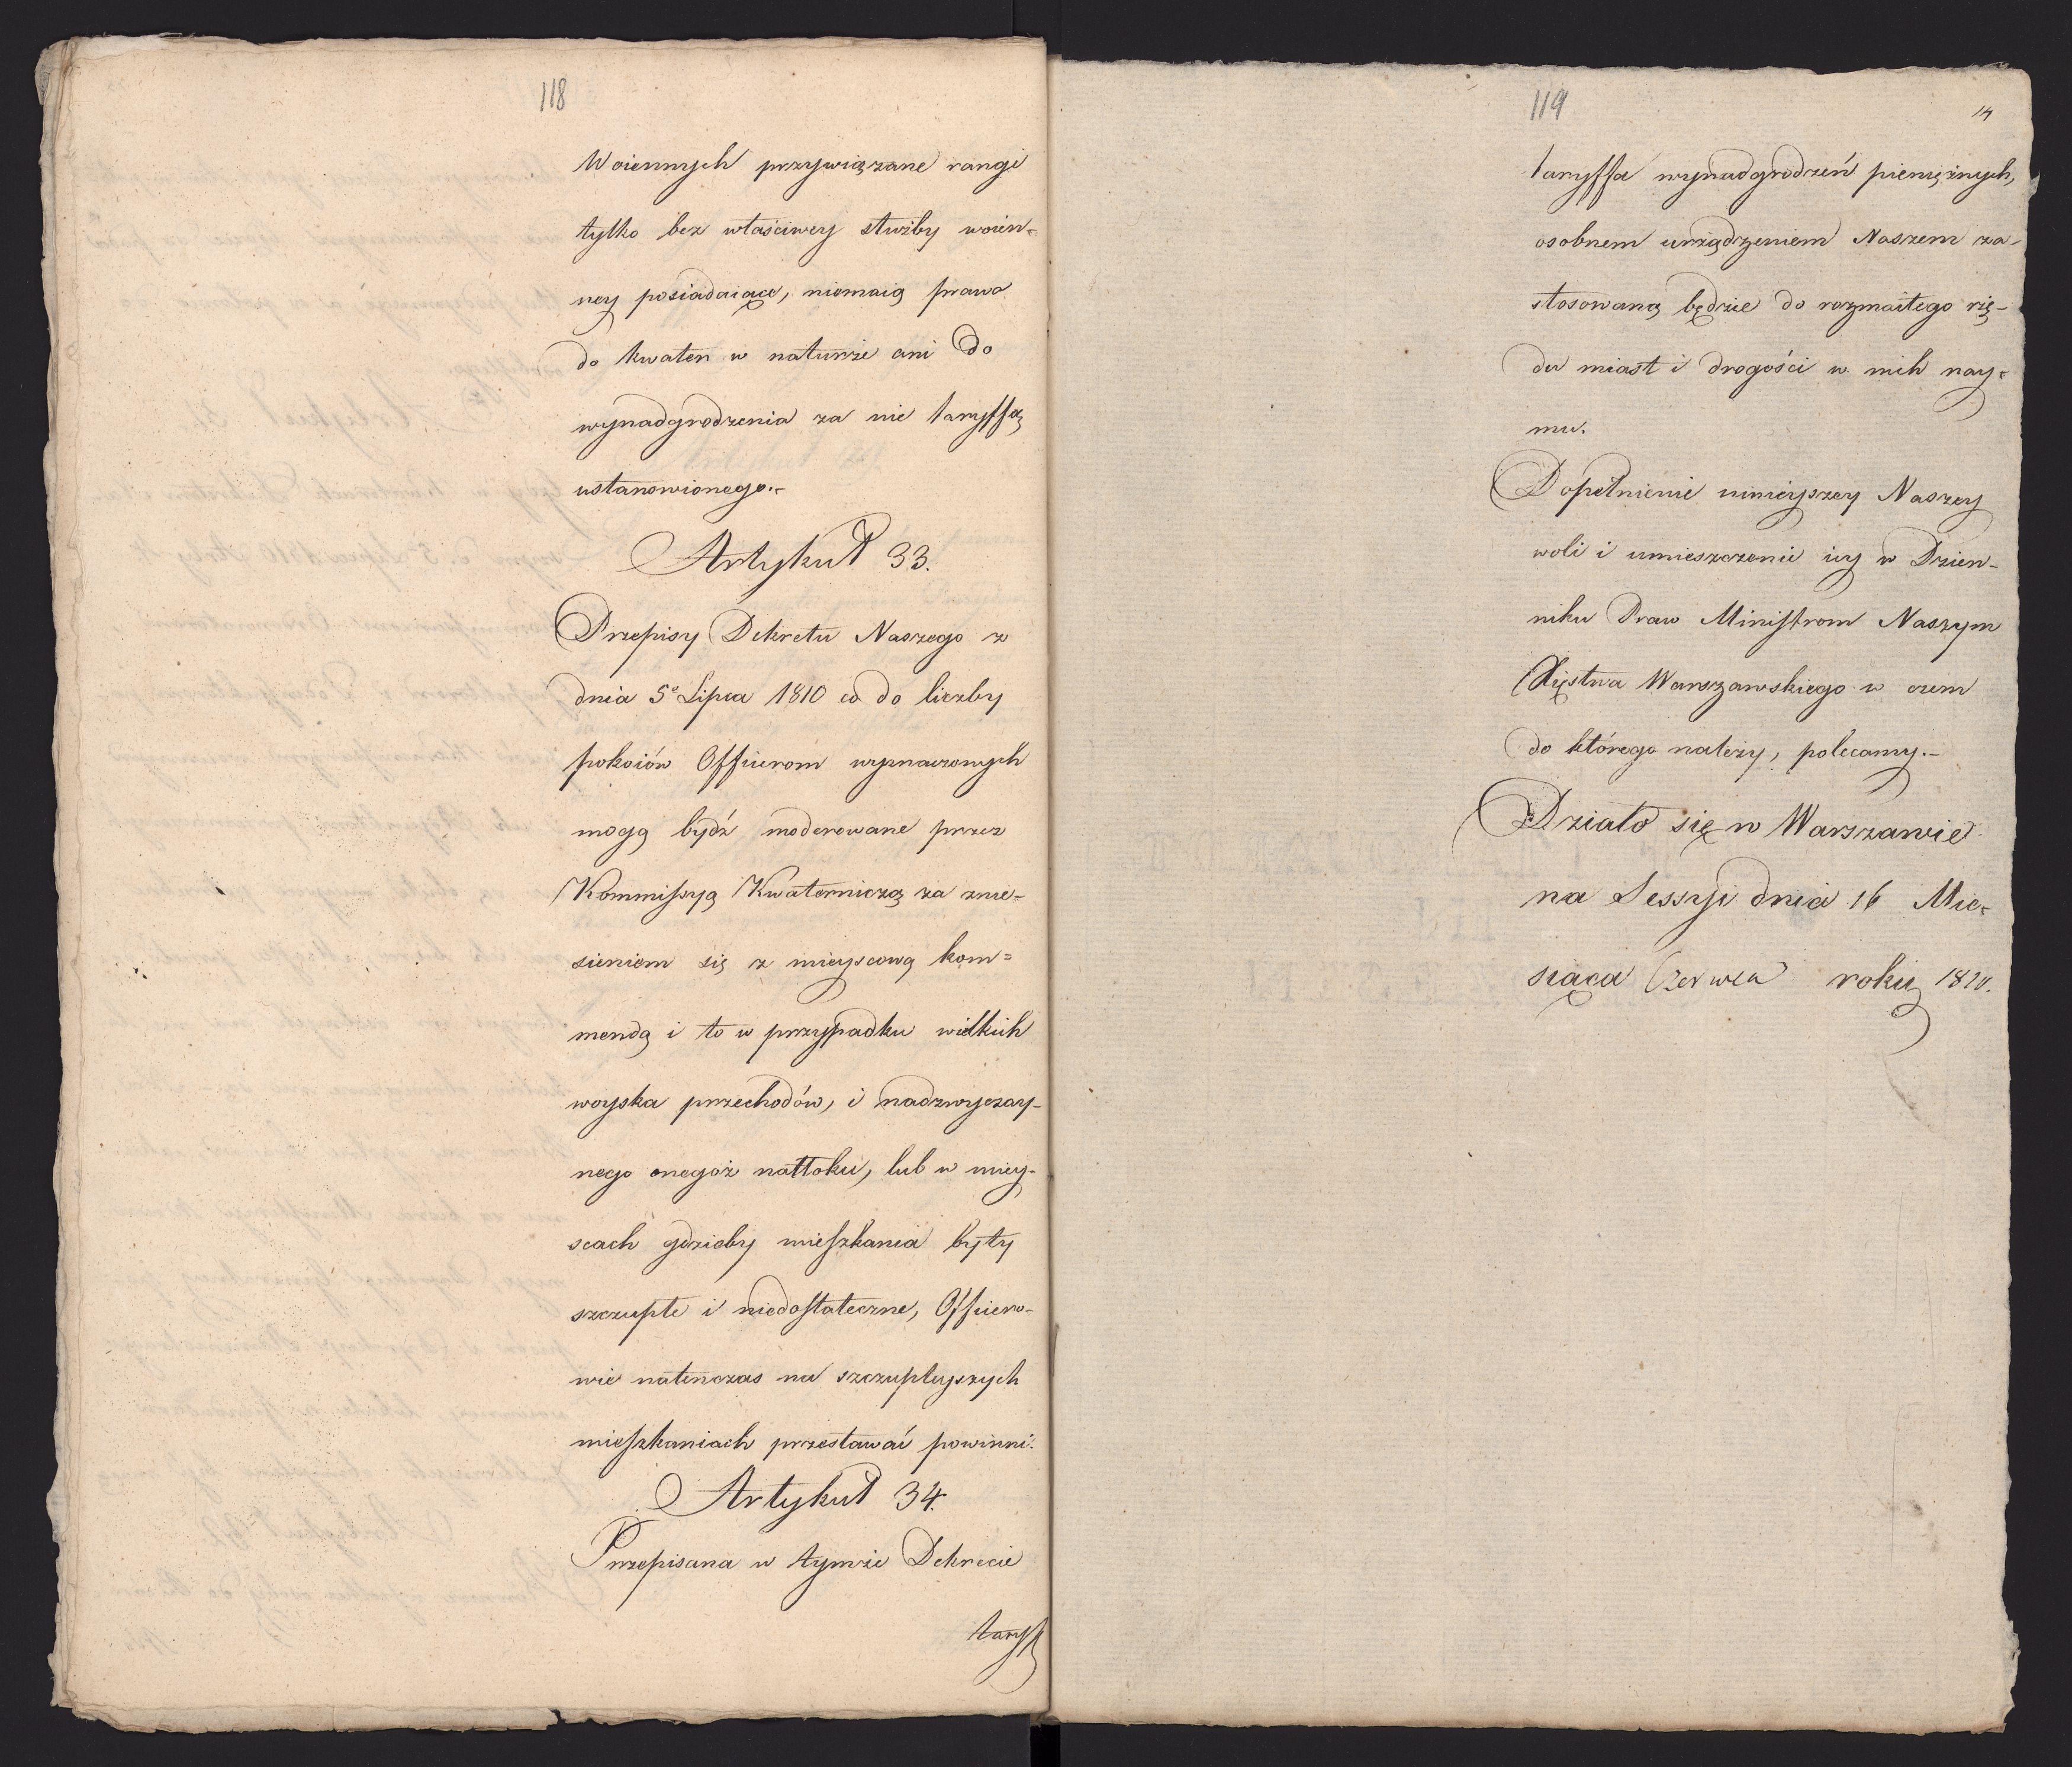 118
Woiennych przywiązane rangi
tylko bez właściwey służby woien-
ney posiadaiące, niemaią prawa
do kwater w naturze ani do
wynadgrodzenia za nie taryffą
ustanowionego.-
Artykuł 33.
Przepisy Dekretu Naszego z
dnia 5º Lipca 1810 co do liczby
pokoiów Officerom wyznaczonych
mogą bydź moderowane przez
Kommissyą Kwaterniczą za znie-
sieniem się z mieyscową kom=
mendą i to w przypadku wielkich
woyska przechodów, i nadzwyczay-
nego onegoż natłoku, lub w miey-
scach gdzieby mieszkania były
szczupłe i niedostateczne, Officero-
wie natenczas na szczupleyszych
mieszkaniach przestawać powinni.
Artykuł 34.
Przepisana w tymże Dekrecie
taryff
119
14
taryffa wynadgrodzeń pieniężnych,
osobnem urządzeniem Naszem za-
stosowaną będzie do rozmaitego rzę-
du miast i drogości w nich nay-
mu.
Dopełnienie ninieyszey Naszey
woli i umieszczenie iey w Dzien-
niku Praw Ministrom Naszym
Xięstwa Warszawskiego w czem
do którego należy, polecamy.-
Działo się w Warszawie
na Sessyi dnia 16 Mie-
siąca Czerwca roku 1810.